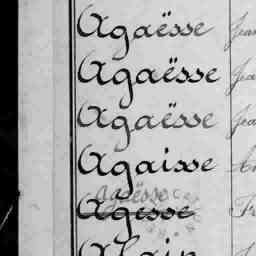 Agaësse Jean
Agaësse Jea
Agaësse Jea
Agaisse
agaësse
Agesse Fr
Alain